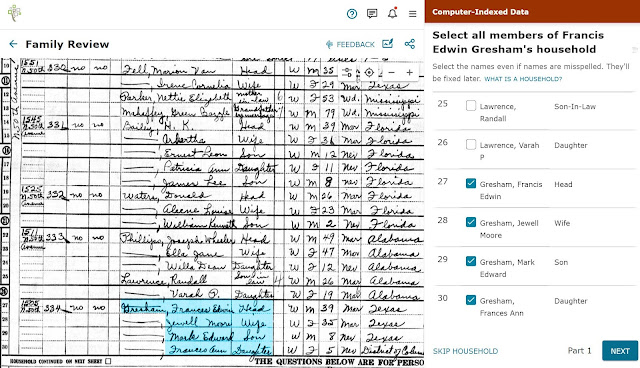 Family Review
FEEDBACK
10 1551 N. 50th 330 no no Fell, Marion Van Head W M 35
, Irene Cornelia Wife W F 29 Mar Texas
Parker, Nettie Elizabeth mother-in-law W F 53 Wd. Mississippi
W M 79 Wd. Mississippi
1545 N. 50th 331 no no Bailey, H. K. Head W M 39 Mar Florida
Wife W F 36 Mar Florida
, Ernest Leon Son W M 12 Nev Florida
, Patricia Ann Daughter W F 11 Nev Florida
, James Lee Son W M 8 Nev Florida
19 1525 N. 50th 332 no no Waters, Donald Head W M 26 Mar Florida
20 , Aleene Louise Wife W F 23 Mar Florida
, William Kenneth Son W M 2 Nev Florida
1511 N. 50th 333 no no Phillips, Joseph Wheeler Head W M 49 Mar Alabama
, Ella Jane Wife W F 47 Mar Alabama
, Willa Dean Daughter W F 12 Nev Alabama
25 Lawrence, Randall Son in law W M 26 Mar Alabama
, Varah P. Daughter W F 19 Mar Alabama
27 334 no no Gresham, Frances Edwin Head W M 39 Mar Texas
28 , Jewell More Wife W F 35 Mar Texas
29 , Mark Edward Son W M 8 Nev Texas
30 , Frances Ann Daughter W F 5 Nev District of Colum
HOUSEHOLD CONTINUED ON NEXT SHEET
THE QUESTIONS BELOW ARE FOR PERSO
Computer-Indexed Data
Select all members of Francis
Edwin Gresham's household
Select the names even if names are misspelled. They'll
be fixed later. WHAT IS A HOUSEHOLD?
25 Lawrence, Randall Son-In-Law
26 Lawrence, Varah P Daughter
27 Gresham, Francis Edwin Head
28 Gresham, Jewell Moore Wife
29 Gresham, Mark Edward Son
30 Gresham, Frances Ann Daughter
SKIP HOUSEHOLD Part 1 NEXT